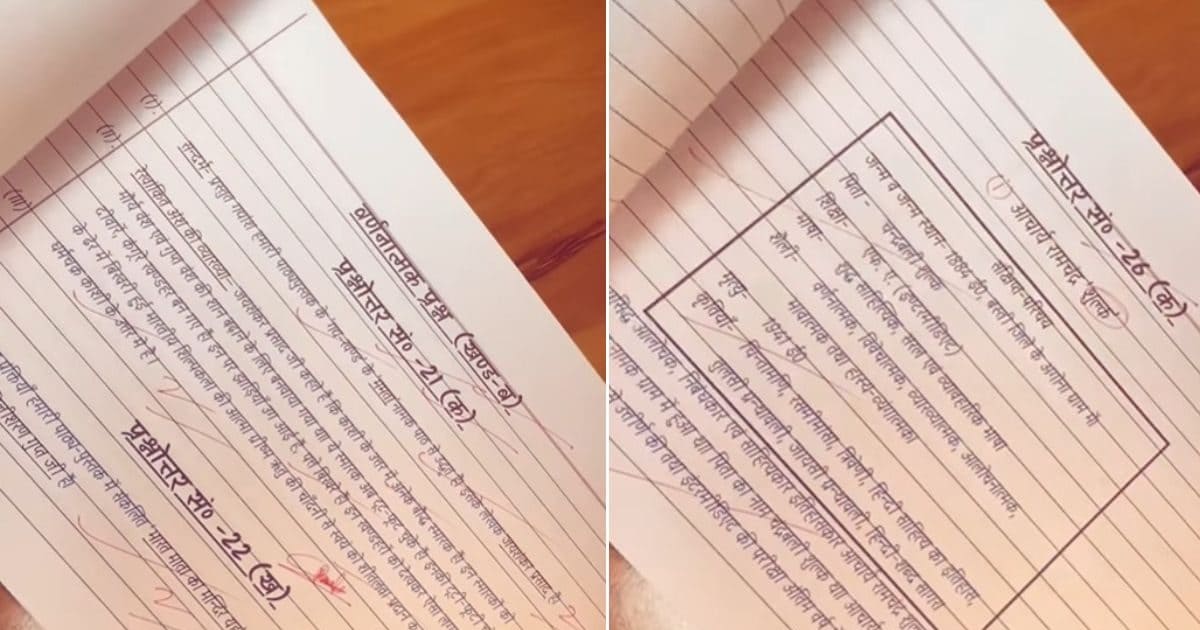 वर्णनात्मक प्रश्न (खण्ड-ब)
प्रश्नोत्तर सं० -21 (क)
(i).
सन्दर्भ- प्रस्तुत गद्यांश हमारी पाठ्यपुस्तक के गद्य-खण्ड के 'ममता' नामक पाठ से उद्धृत है इसके लेखक जयशंकर प्रसाद है
(ii).
रेखांकित अंश की व्याख्या- जयशंकर प्रसाद जी कहते है कि काशी के उत्तर में अनेक बौद्ध स्मारक है इन स्मारकों को
मौर्य वंश एवं गुप्त वंश की शान बढ़ाने के लिए बनवाया गया था ये स्मारक अब टूट-फूट चुके है इनकी टूटी-फूटी
दीवारें, कंगूरे खण्डहर बन गए है इन पर झाड़ियाँ उग आई है,
के ढेर में बिखरी हुई भारतीय शिल्पकला की आत्मा ग्रीष्म ऋतु की चाँदनी से स्वयं को शीतलता प्रदान
(iii)
धर्मचक्र काशी के उत्तर में है।
2
प्रश्नोत्तर सं० -22 (ख)
पंक्तियाँ हमारी पाठ्य-पुस्तक में संकलित 'भारत माता का मन्दिर
गुप्त जी है
2
प्रश्नोत्तर सं० -26 (क)
(i) आचार्य रामचंद्र शुक्ल
संक्षिप्त परिचय
जन्म व जन्म स्थान- 1884 ई०, बस्ती जिले के अगोना ग्राम में
पिता- चन्द्रबली शुक्ल
शिक्षा- एफ. ए. (इण्टरमीडिएट)
भाषा- शुद्ध साहित्यिक, सरल एवं व्यावहारिक भाषा
शैली- वर्णनात्मक, विवेचनात्मक, व्याख्यात्मक, आलोचनात्मक,
भावात्मक तथा हास्य व्यंग्यात्मक
मृत्यु- 1941 ई०
कृतियाँ- चिन्तामणि, रसमीमांसा, त्रिवेणी, हिन्दी साहित्य का इतिहास,
तुलसी ग्रन्थावली, जायसी ग्रन्थावली, हिन्दी शब्द सागर
आलोचक, निबंधकार एवं साहित्यकार इतिहासकार आचार्य रामचन्द्र
नामक ग्राम में हुआ था पिता का नाम चंद्रबली शुक्ल था
उत्तीर्ण की तथा इंटरमीडिएट की परीक्षा अंतिम वर्ष